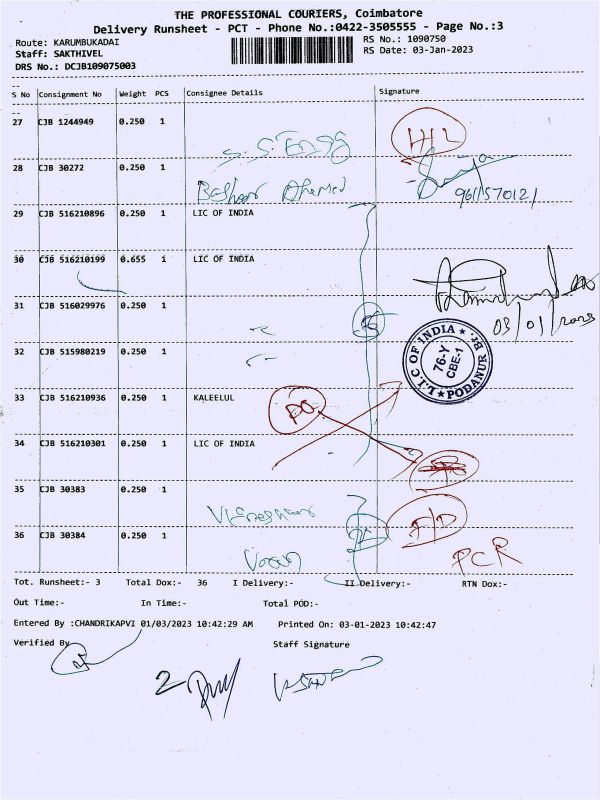 THE PROFESSIONAL COURIERS, Coimbatore
Delivery Runsheet - PCT - Phone No.:0422-3505555 - Page No.:3
Route: KARUMBUKADAI
RS No.: 1090750
Staff: SAKTHIVEL
RS Date: 03-Jan-2023
DRS No.: DCJB109075003
S No Consignment No Weight PCS Consignee Details Signature
27 CJB 1244949 0.250 1
H/L
28 CJB 30272 0.250 1
Basheer Ahemed
9611570121
29 CJB 516210896 0.250 1 LIC OF INDIA
30 CJB 516210199 0.655 1 LIC OF INDIA
31 CJB 516029976 0.250 1
03/01/2023
L.I.C OF INDIA ★ BR. PODANUR ★
76-Y
CBE-1
32 CJB 515980219 0.250 1
33 CJB 516210936 0.250 1 KALEELUL
34 CJB 516210301 0.250 1 LIC OF INDIA
35 CJB 30383 0.250 1
F/D
36 CJB 30384 0.250 1
PCR
Tot. Runsheet:- 3 Total Dox:- 36 I Delivery:- II Delivery:- RTN Dox:-
Out Time:- In Time:- Total POD:-
Entered By :CHANDRIKAPVI 01/03/2023 10:42:29 AM Printed On: 03-01-2023 10:42:47
Verified By
Staff Signature